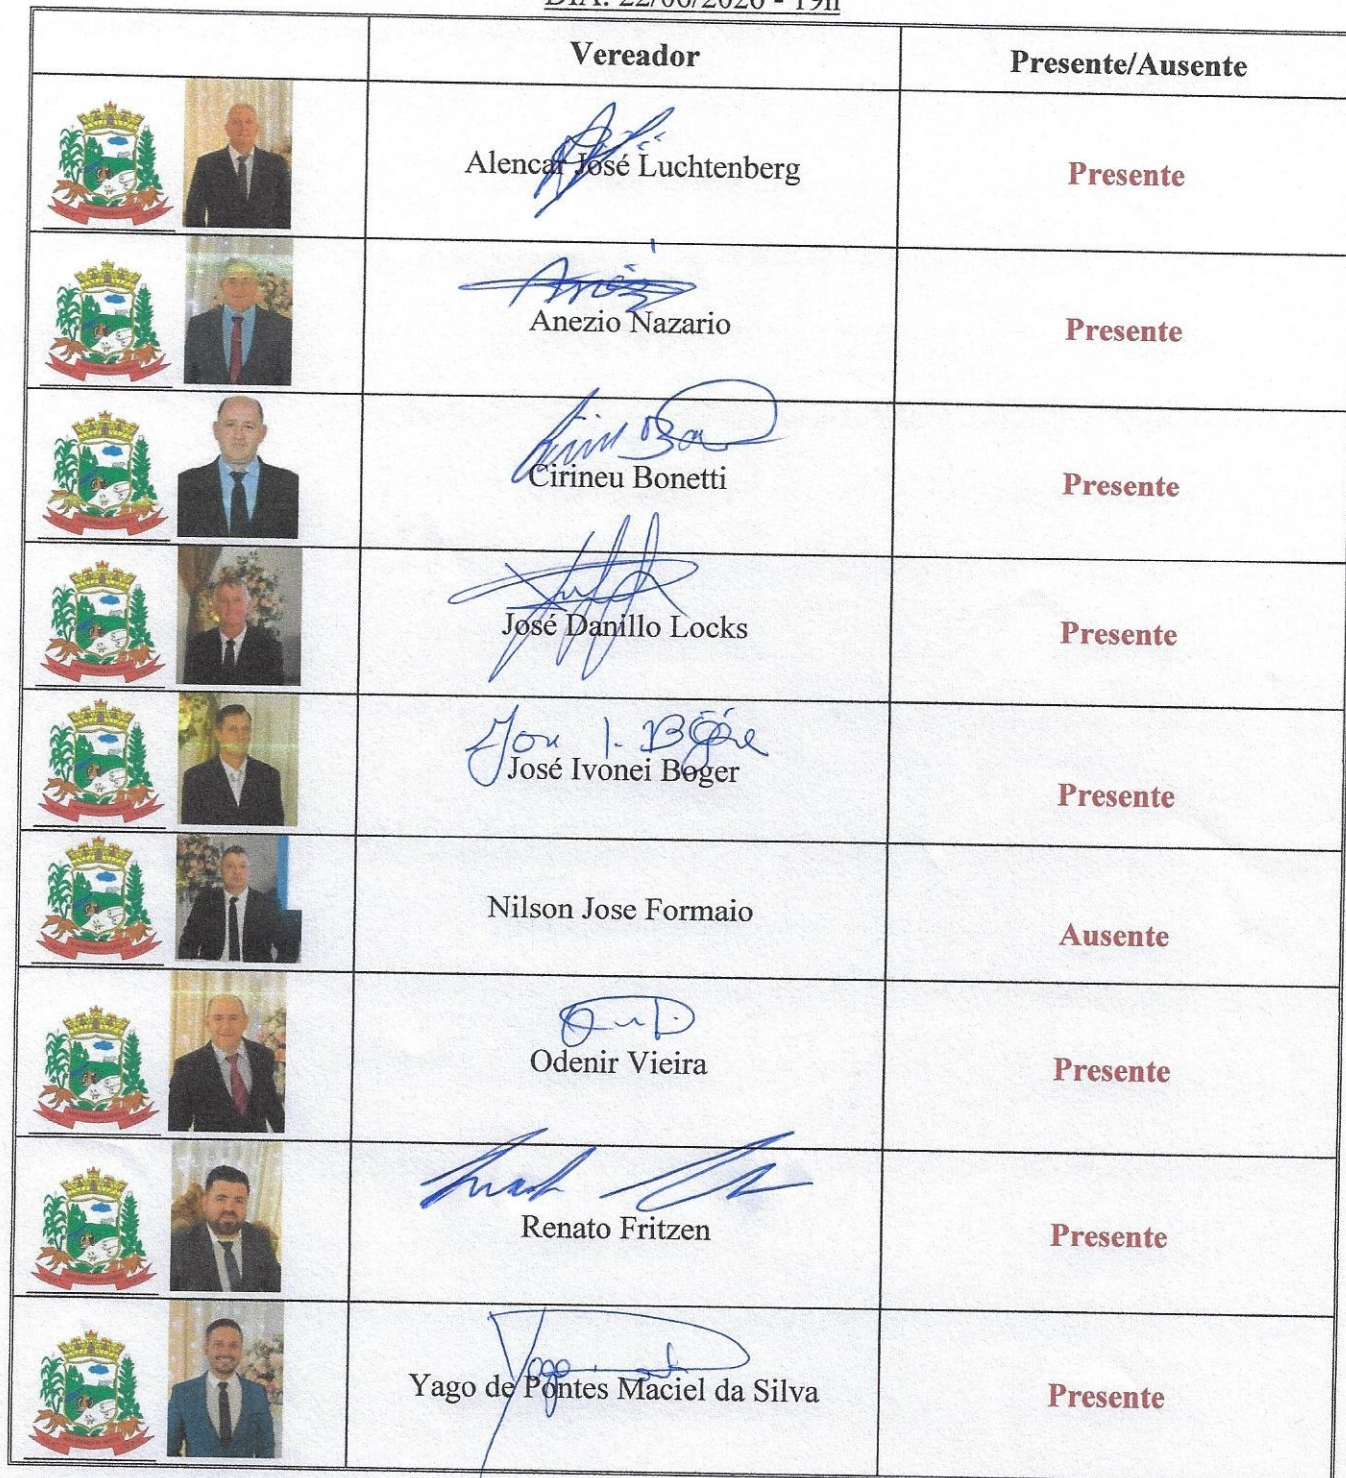 DIA: 22/06/2026 - 19h
Vereador
Presente/Ausente
Alencar José Luchtenberg
Presente
Anezio Nazario
Presente
Cirineu Bonetti
Presente
José Danillo Locks
Presente
José Ivonei Boger
Presente
Nilson Jose Formaio
Ausente
Odenir Vieira
Presente
Renato Fritzen
Presente
Yago de Pontes Maciel da Silva
Presente